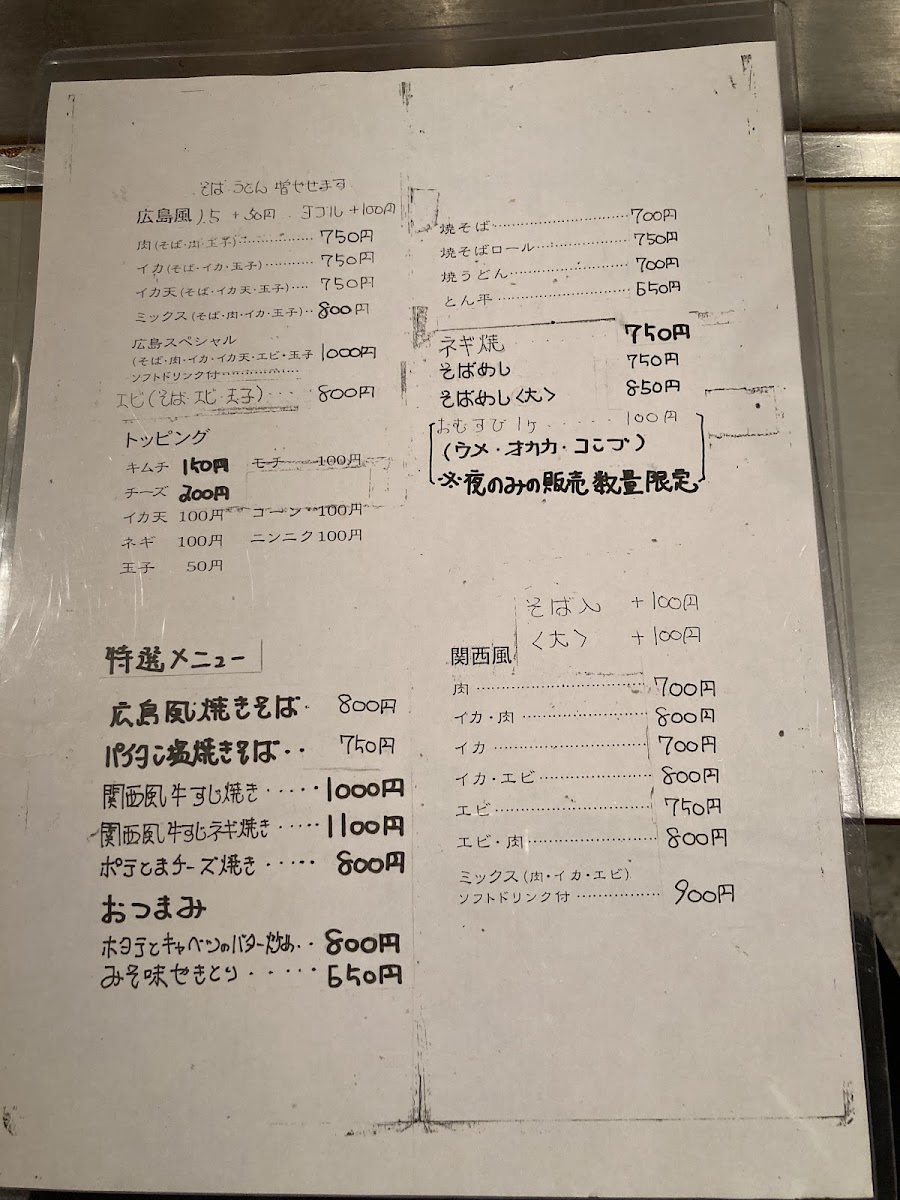 そば うどん 増やせます
広島風 1.5 +50円 . ダブル +100円
肉(そば・肉・玉子)……………750円
イカ(そば・イカ・玉子)…………750円
イカ天(そば・イカ天・玉子)……750円
ミックス(そば・肉・イカ・玉子)…800円
広島スペシャル
(そば・肉・イカ・イカ天・エビ・玉子 1000円
ソフトドリンク付……………
エビ(そば・エビ・玉子)…… 800円
トッピング
キムチ 150円 モチ 100円
チーズ 200円
イカ天 100円 コーン 100円
ネギ 100円 ニンニク 100円
玉子 50円
特選メニュー
広島風焼きそば 800円
パイタン塩焼きそば・・ 750円
関西風牛すじ焼き・・・・・1000円
関西風牛すじネギ焼き・・・・・1100円
ポテとまチーズ焼き・・・・・800円
おつまみ
ホタテとキャベツのバター炒め・・800円
みそ味せきとり・・・・・650円
焼そば……………………700円
焼そばロール……………750円
焼うどん…………………700円
とん平……………………650円
ネギ焼 750円
そばめし 750円
そばめし〈大〉 850円
おむすび 1ヶ 100円
(ウメ・オカカ・コンブ)
※夜のみの販売 数量限定
そば入 +100円
〈大〉 +100円
関西風
肉……………………700円
イカ・肉……………800円
イカ…………………700円
イカ・エビ…………800円
エビ…………………750円
エビ・肉……………800円
ミックス(肉・イカ・エビ)
ソフトドリンク付……………900円